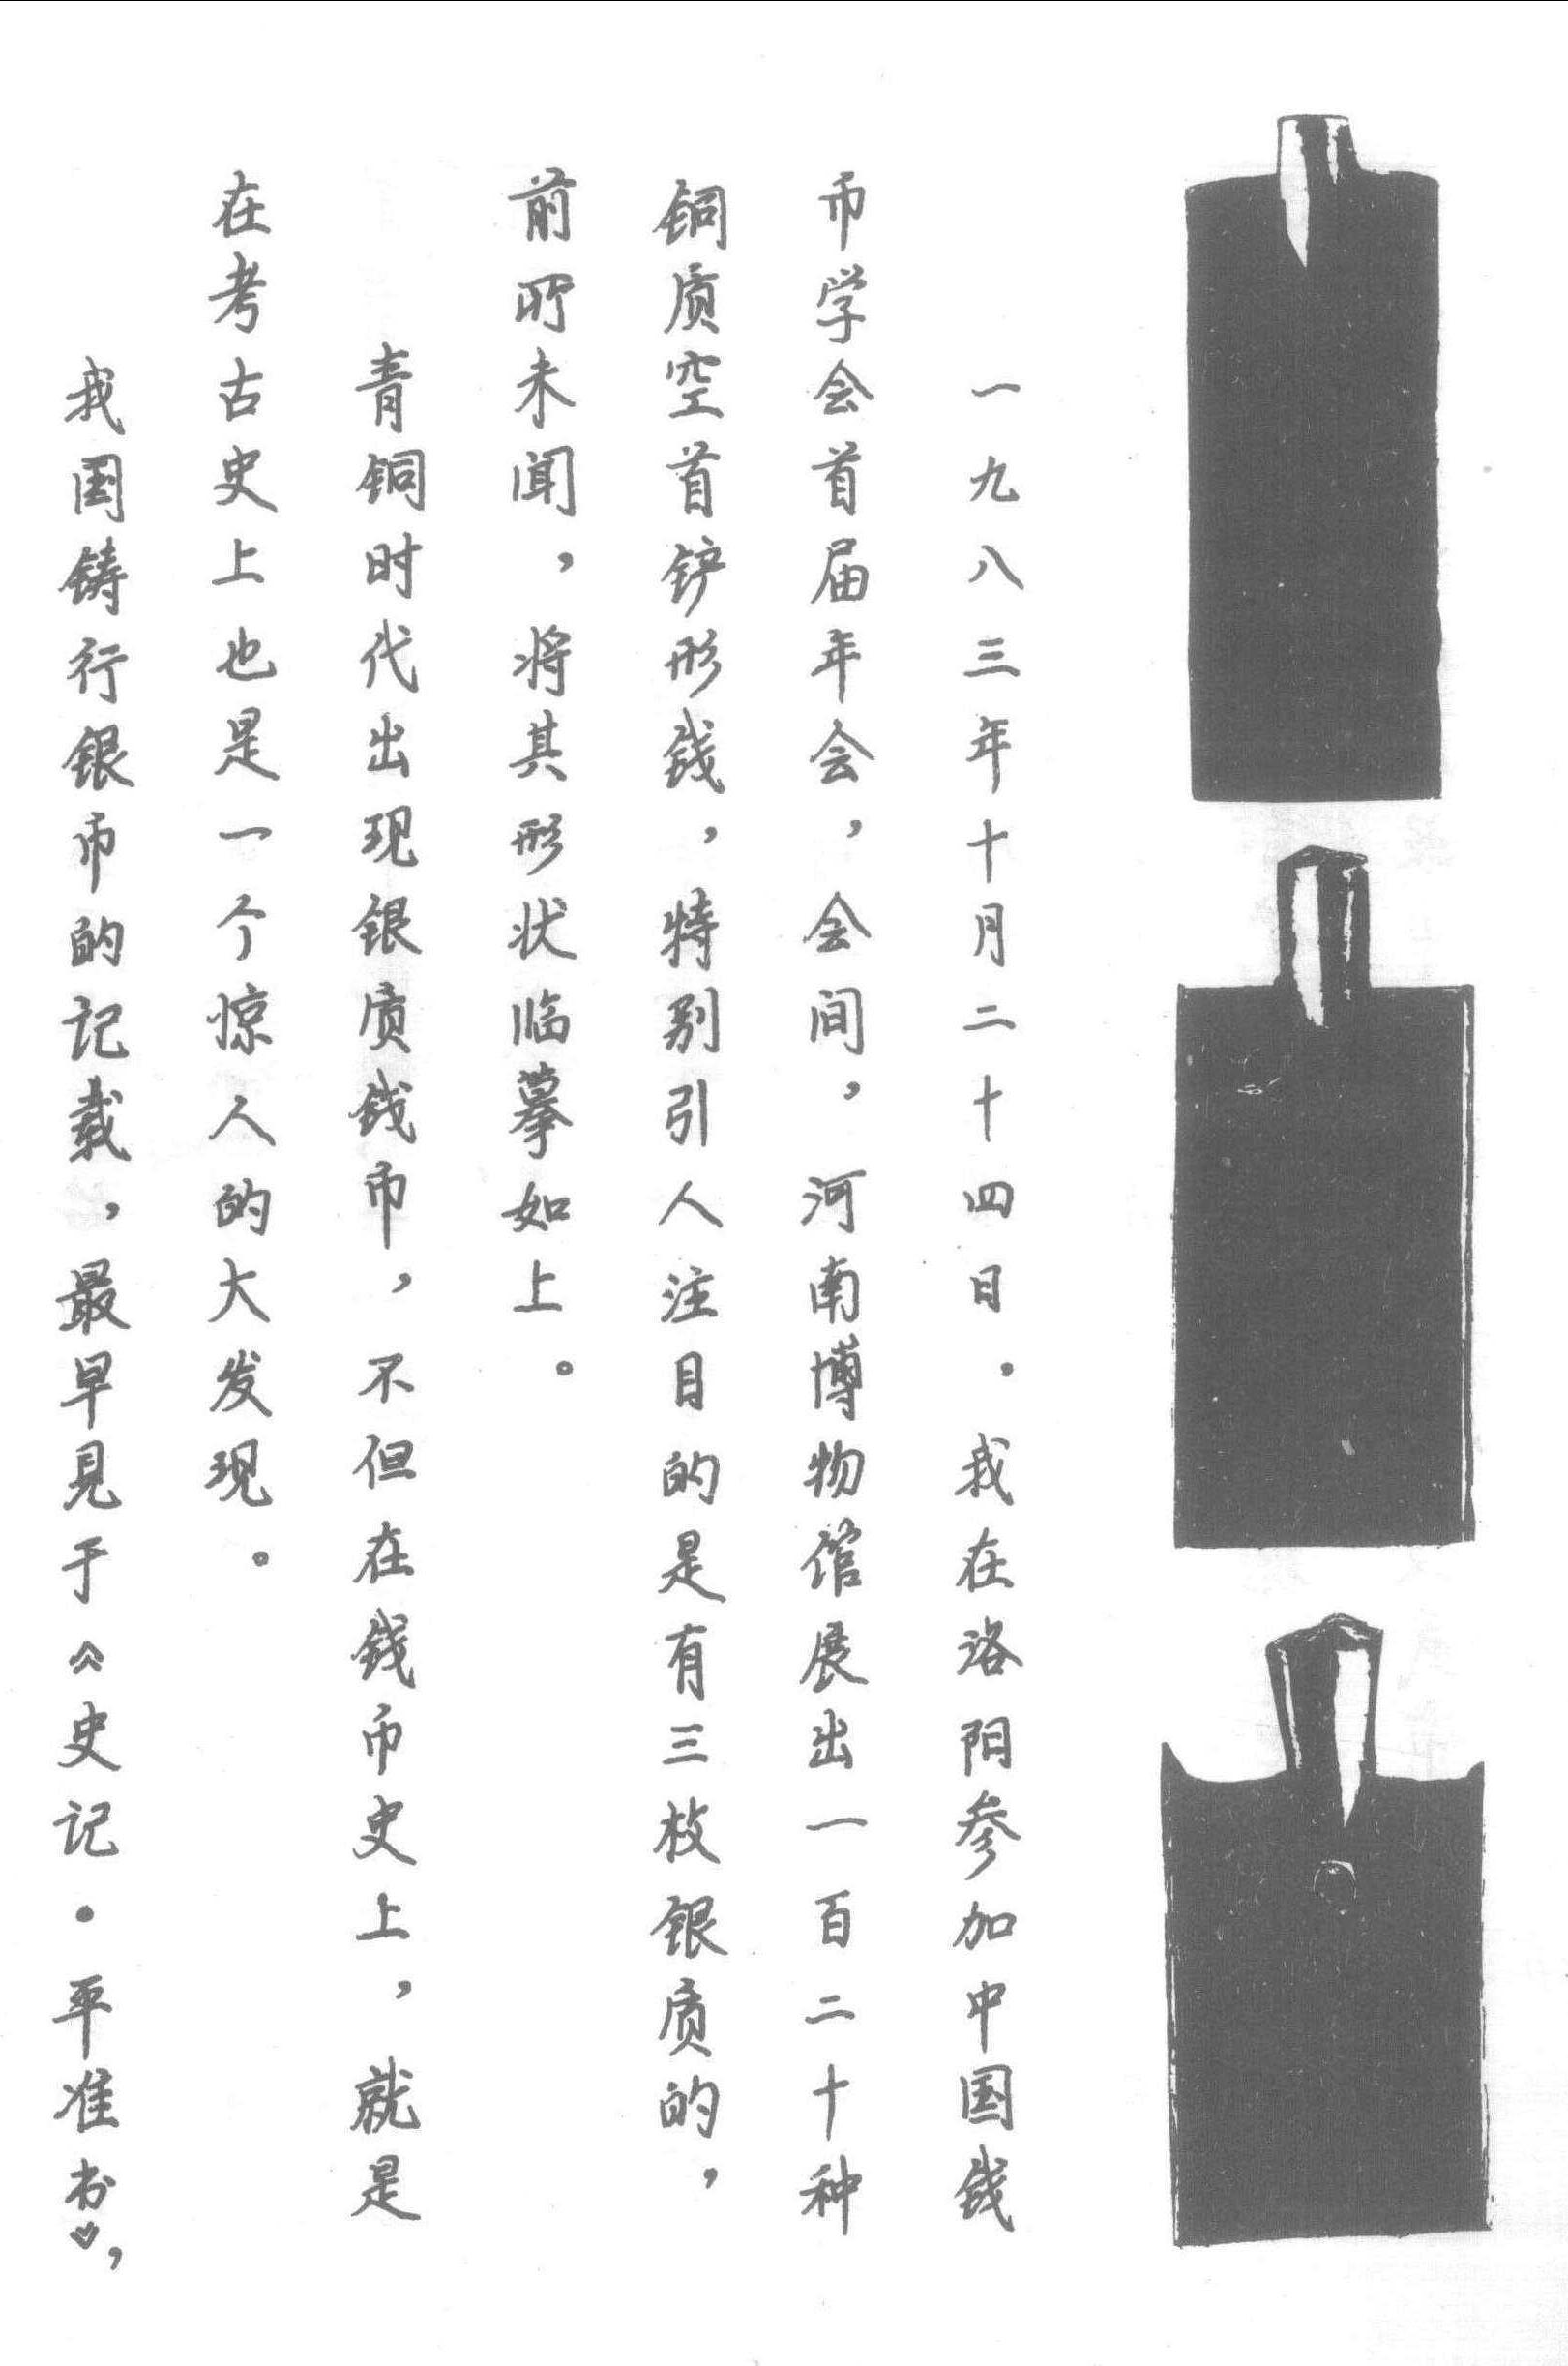 一九八三年十月二十四日。我在洛阳参加中国钱
币学会首届年会，会间，河南博物馆展出一百二十种
铜质空首铲形钱，特别引人注目的是有三枚银质的，
前所未闻，将其形状临摹如上。
青铜时代出现银质钱币，不但在钱币史上，就是
在考古史上也是一个惊人的大发现。
我国铸行银币的记载，最早见于《史记·平准书》，